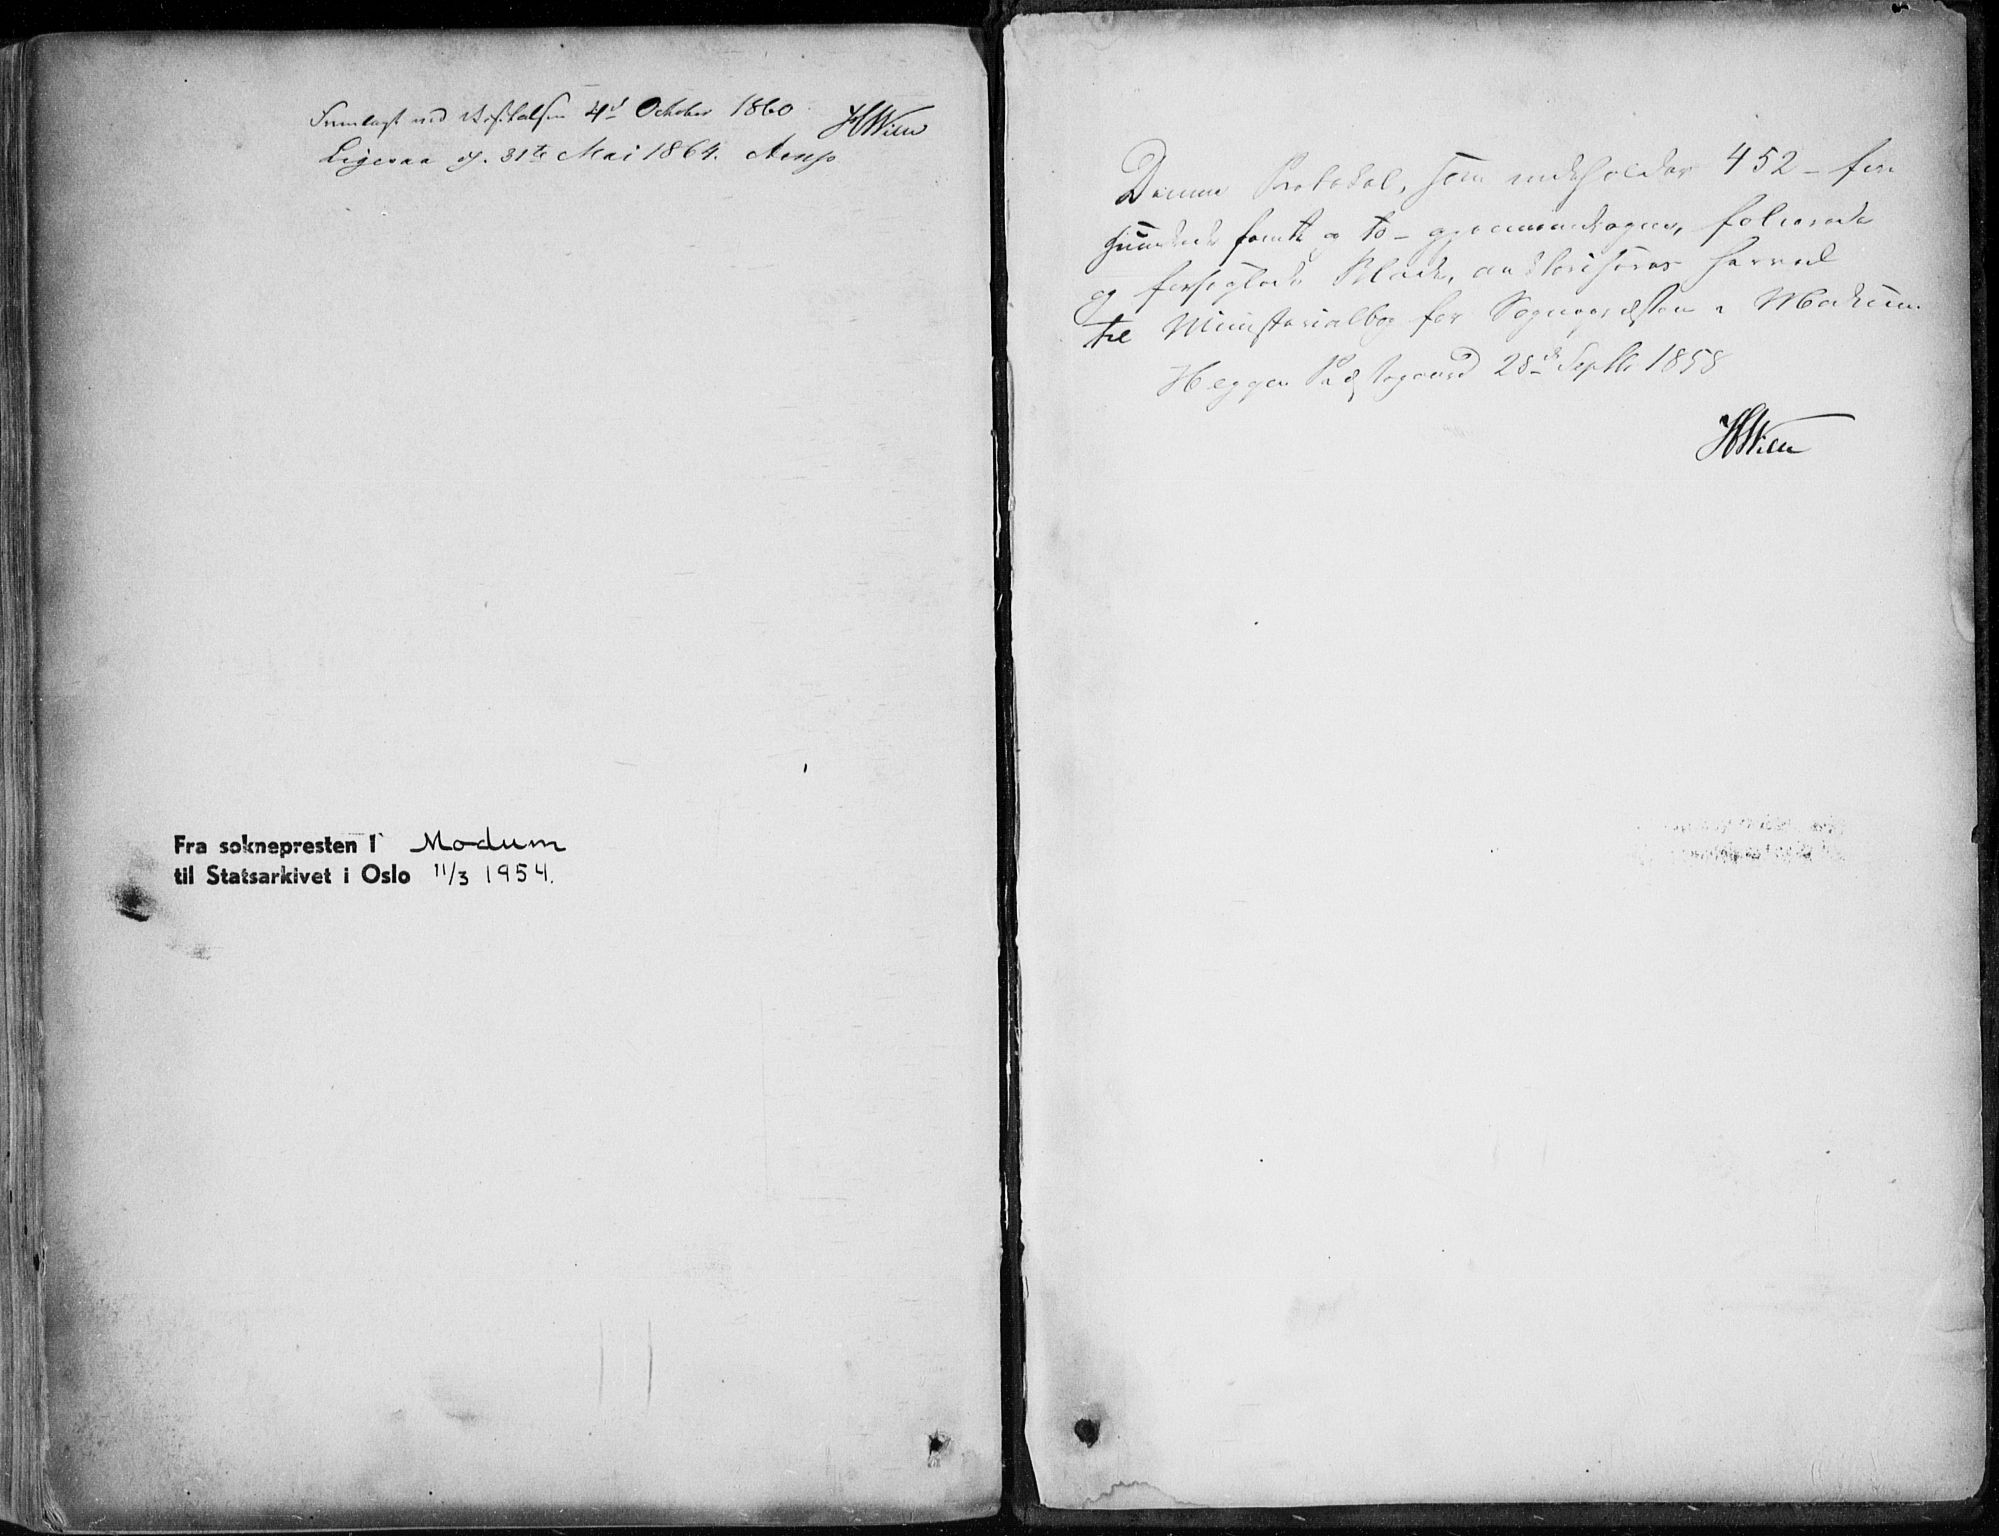 Fremlagt ved 4d October 1860 HWille
Ligesaa d. 31te Mai 1864.
Fra soknepresten i Modum
til Statsarkivet i Oslo 11/3 1954.
Denne Protokol, som indeholder 452 - fire
hundrede femti og to - gjennemdragne, folierede
og forseglede Blade, authoriseres herved
til Ministerialbog for Sognepræsten i Modum.
Heggen Præstegaard 28de Septbr 1858
HWille